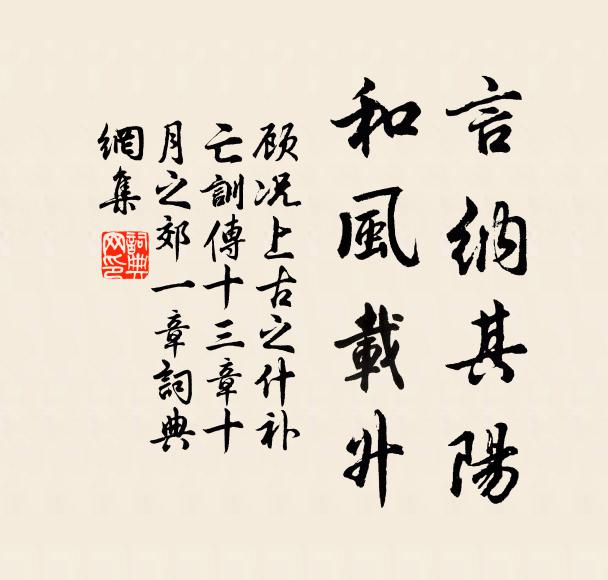 言纳其陽
和風載升
顾况上古之什补
亡訓傳十三章十
月之郊一章詞典
網集
詞典網印